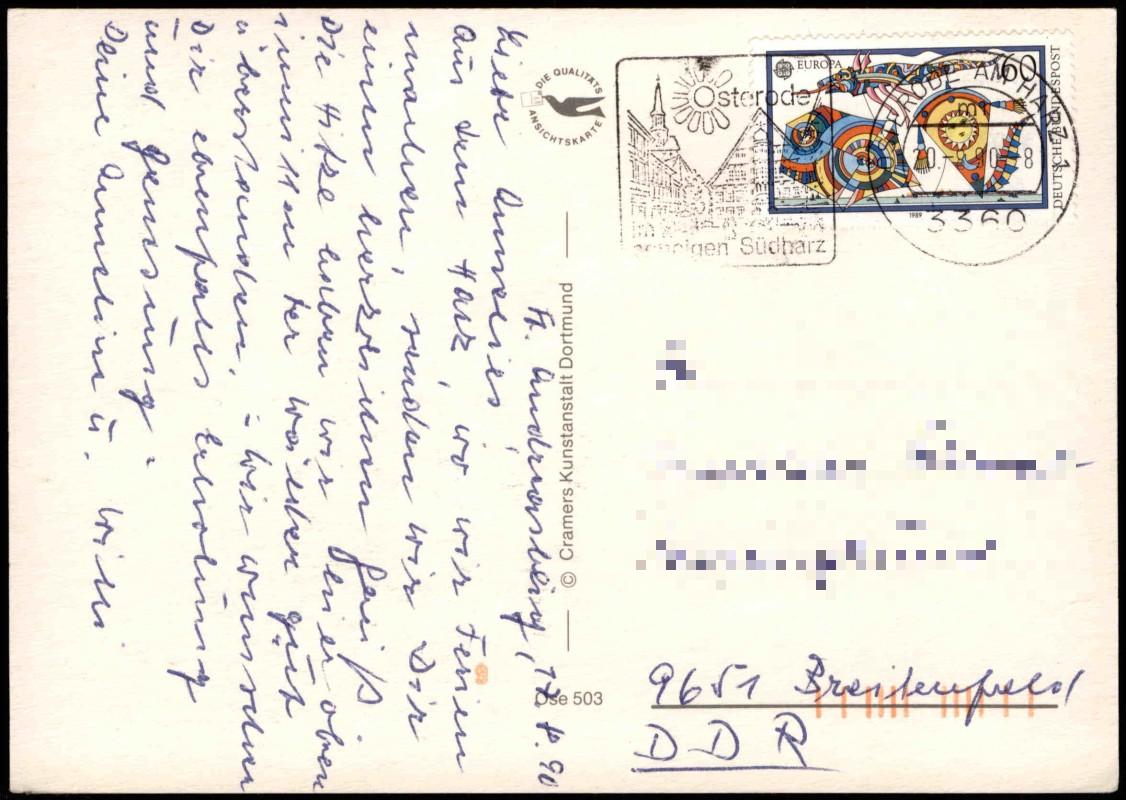 St. Andreasberg, 17.8.90
Liebe Annelies
Aus dem Harz, wo wir Ferien
machen, senden wir Dir
einen herzlichen Gruß
Die Hitze haben wir hier oben
inmitten der Wälder gut
überstanden. Wir wünschen
Dir ebenfalls Erholung
und Genesung
Deine Annelie u. Willi
DIE QUALITÄTS
ANSICHTSKARTE
© Cramers Kunstanstalt Dortmund
Ose 503
Osterode
im
Südharz
EUROPA
60
DEUTSCHE BUNDESPOST
1989
OSTERODE AM HARZ 1
3360
9651 Breitenfeld
DDR